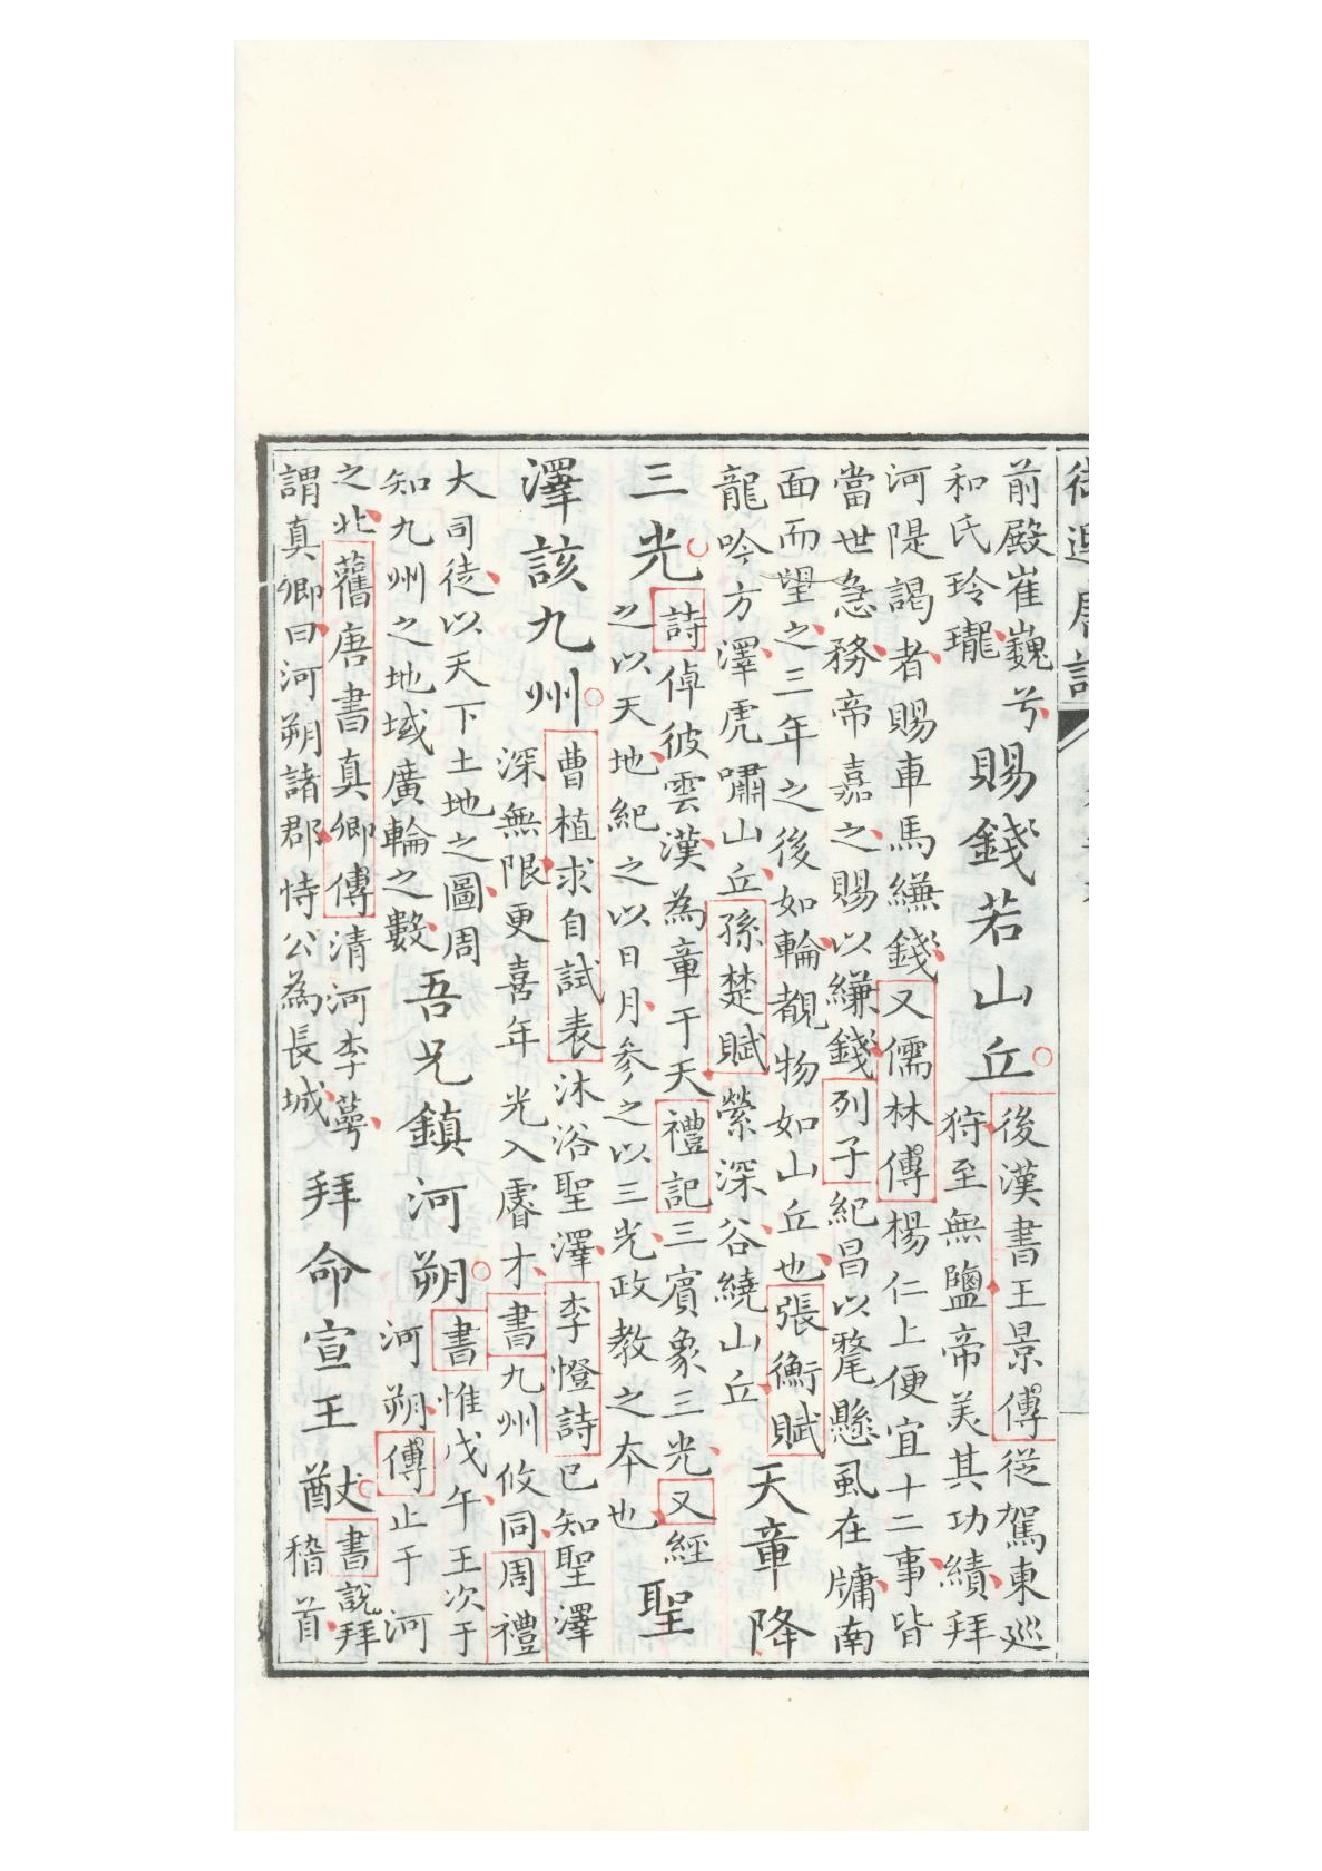 前殿崔巍兮
和氏玲瓏
賜錢若山丘
後漢書王景傳從駕東巡
狩至無鹽帝美其功績拜
河隄謁者賜車馬縑錢又儒林傳楊仁上便宜十二事皆
當世急務帝嘉之賜以縑錢列子紀昌以氂懸虱在牖南
面而望之三年之後如輪覩物如山丘也張衡賦
龍吟方澤虎嘯山丘孫楚賦縈深谷繞山丘
天章降
三光
詩倬彼雲漢為章于天禮記三賓象三光又經
之以天地紀之以日月參之以三光政教之本也
聖
澤該九州
曹植求自試表沐浴聖澤李憕詩已知聖澤
深無限更喜年光入睿才書九州攸同周禮
大司徒以天下土地之圖周
知九州之地域廣輪之數
吾兄鎮河朔
書惟戊午王次于
河朔傳止于河
之北舊唐書真卿傳清河李萼
謂真卿曰河朔諸郡恃公為長城
拜命宣王猷
書說拜
稽首